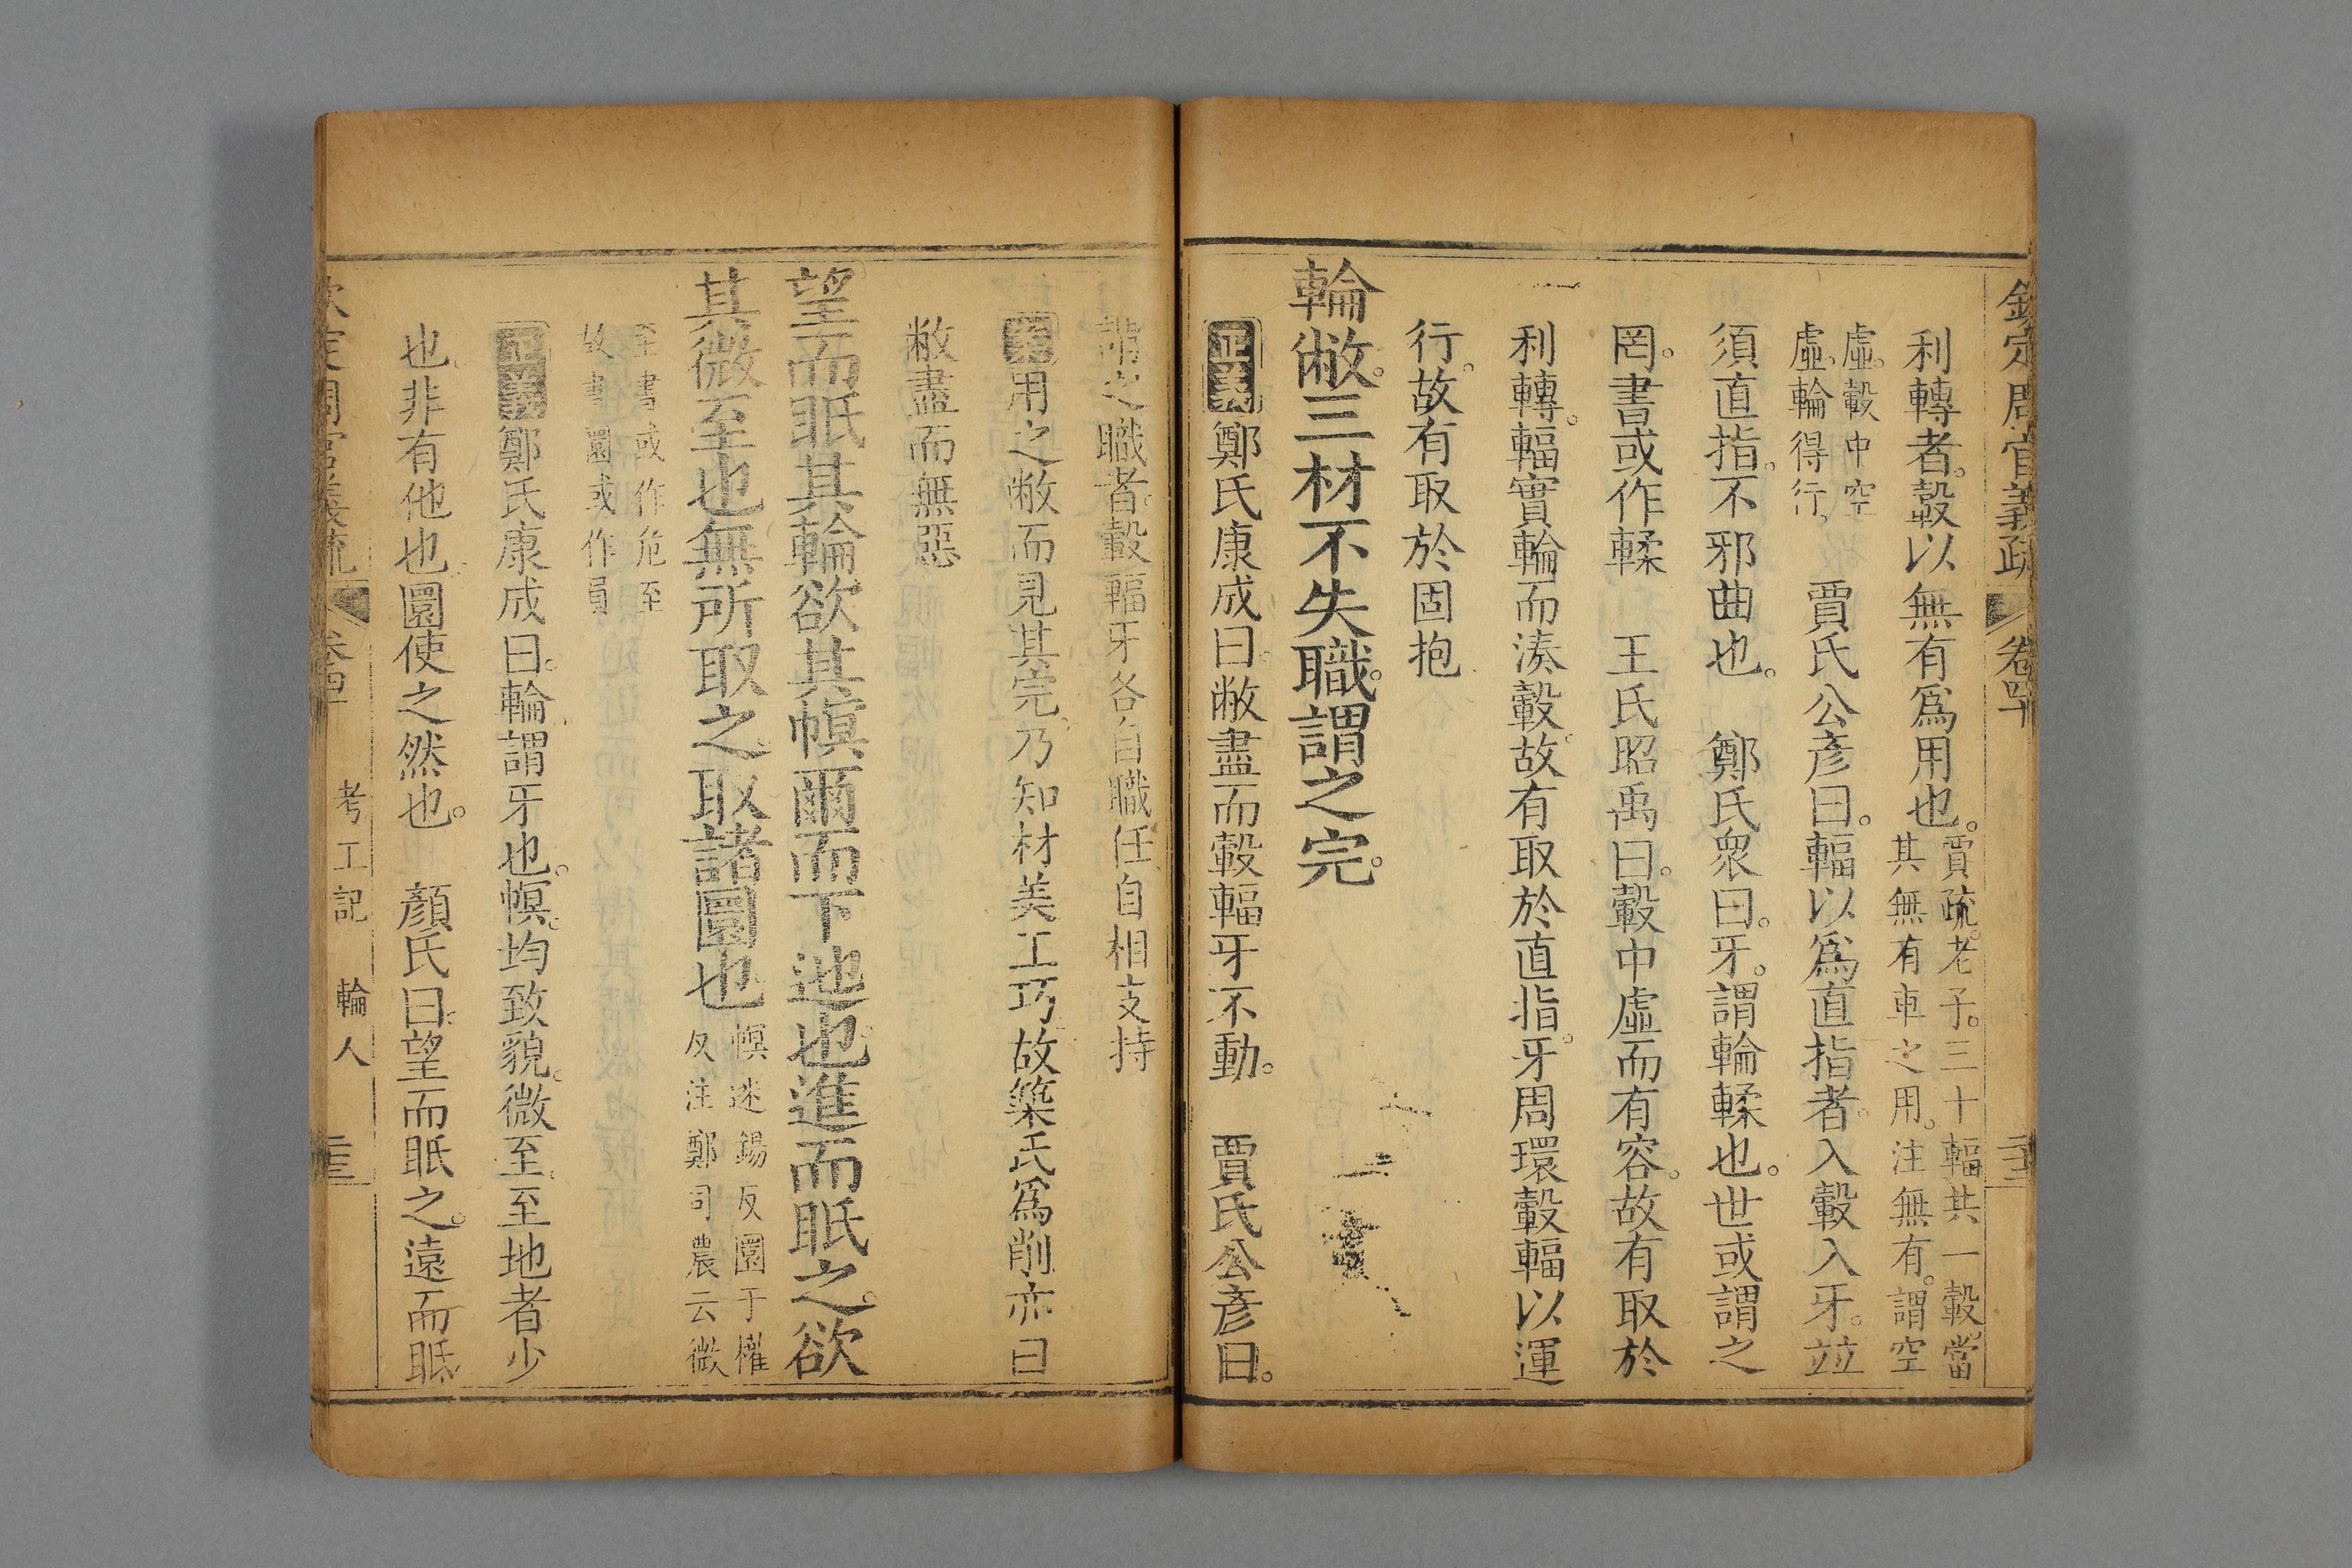 欽定周官義疏 卷四十
利轉者轂以無有爲用也賈疏老子三十輻共一轂當其無有車之用注無有謂空
虛轂中空虛輪得行 賈氏公彥曰輻以爲直指者入轂入牙竝
須直指不邪曲也 鄭氏衆曰牙謂輪輮也世或謂之
罔書或作輮 王氏昭禹曰轂中虛而有容故有取於
利轉輻實輪而湊轂故有取於直指牙周環轂輻以運
行故有取於固抱
輪敝三材不失職謂之完
正義鄭氏康成曰敝盡而轂輻牙不動 賈氏公彥曰
謂之職者轂輻牙各自職任自相支持
用之敝而見其完乃知材美工巧故築氏爲削亦曰
敝盡而無惡
望而眡其輪欲其幎爾而下迆也進而眡之欲
其微至也無所取之取諸圜也幎迷錫反圜于權反注鄭司農云微
至書或作危至故書圜或作員
正義鄭氏康成曰輪謂牙也幎均致貌微至至地者少
也非有他也圜使之然也 顏氏曰望而眡之遠而眡
欽定周官義疏 卷四十 考工記 輪人